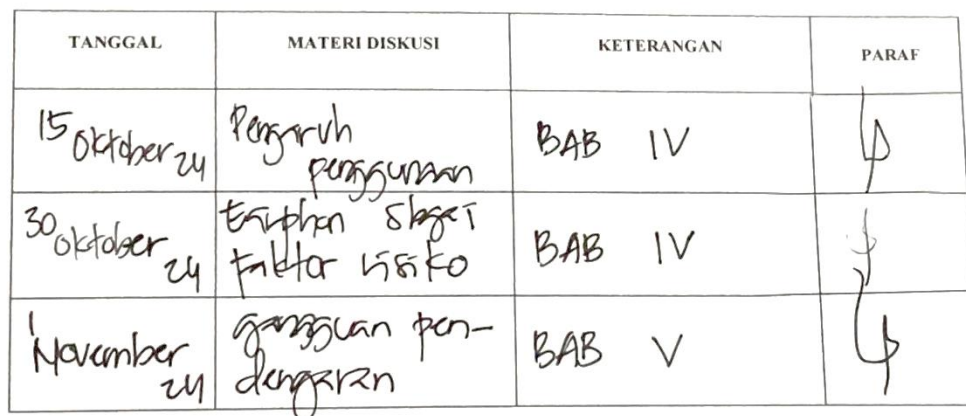 TANGGAL MATERI DISKUSI KETERANGAN PARAF
15 Oktober 24 Pengaruh penggunaan BAB IV
30 Oktober 24 faktor risiko BAB IV
1 November 24 gangguan pen-dengaran BAB V